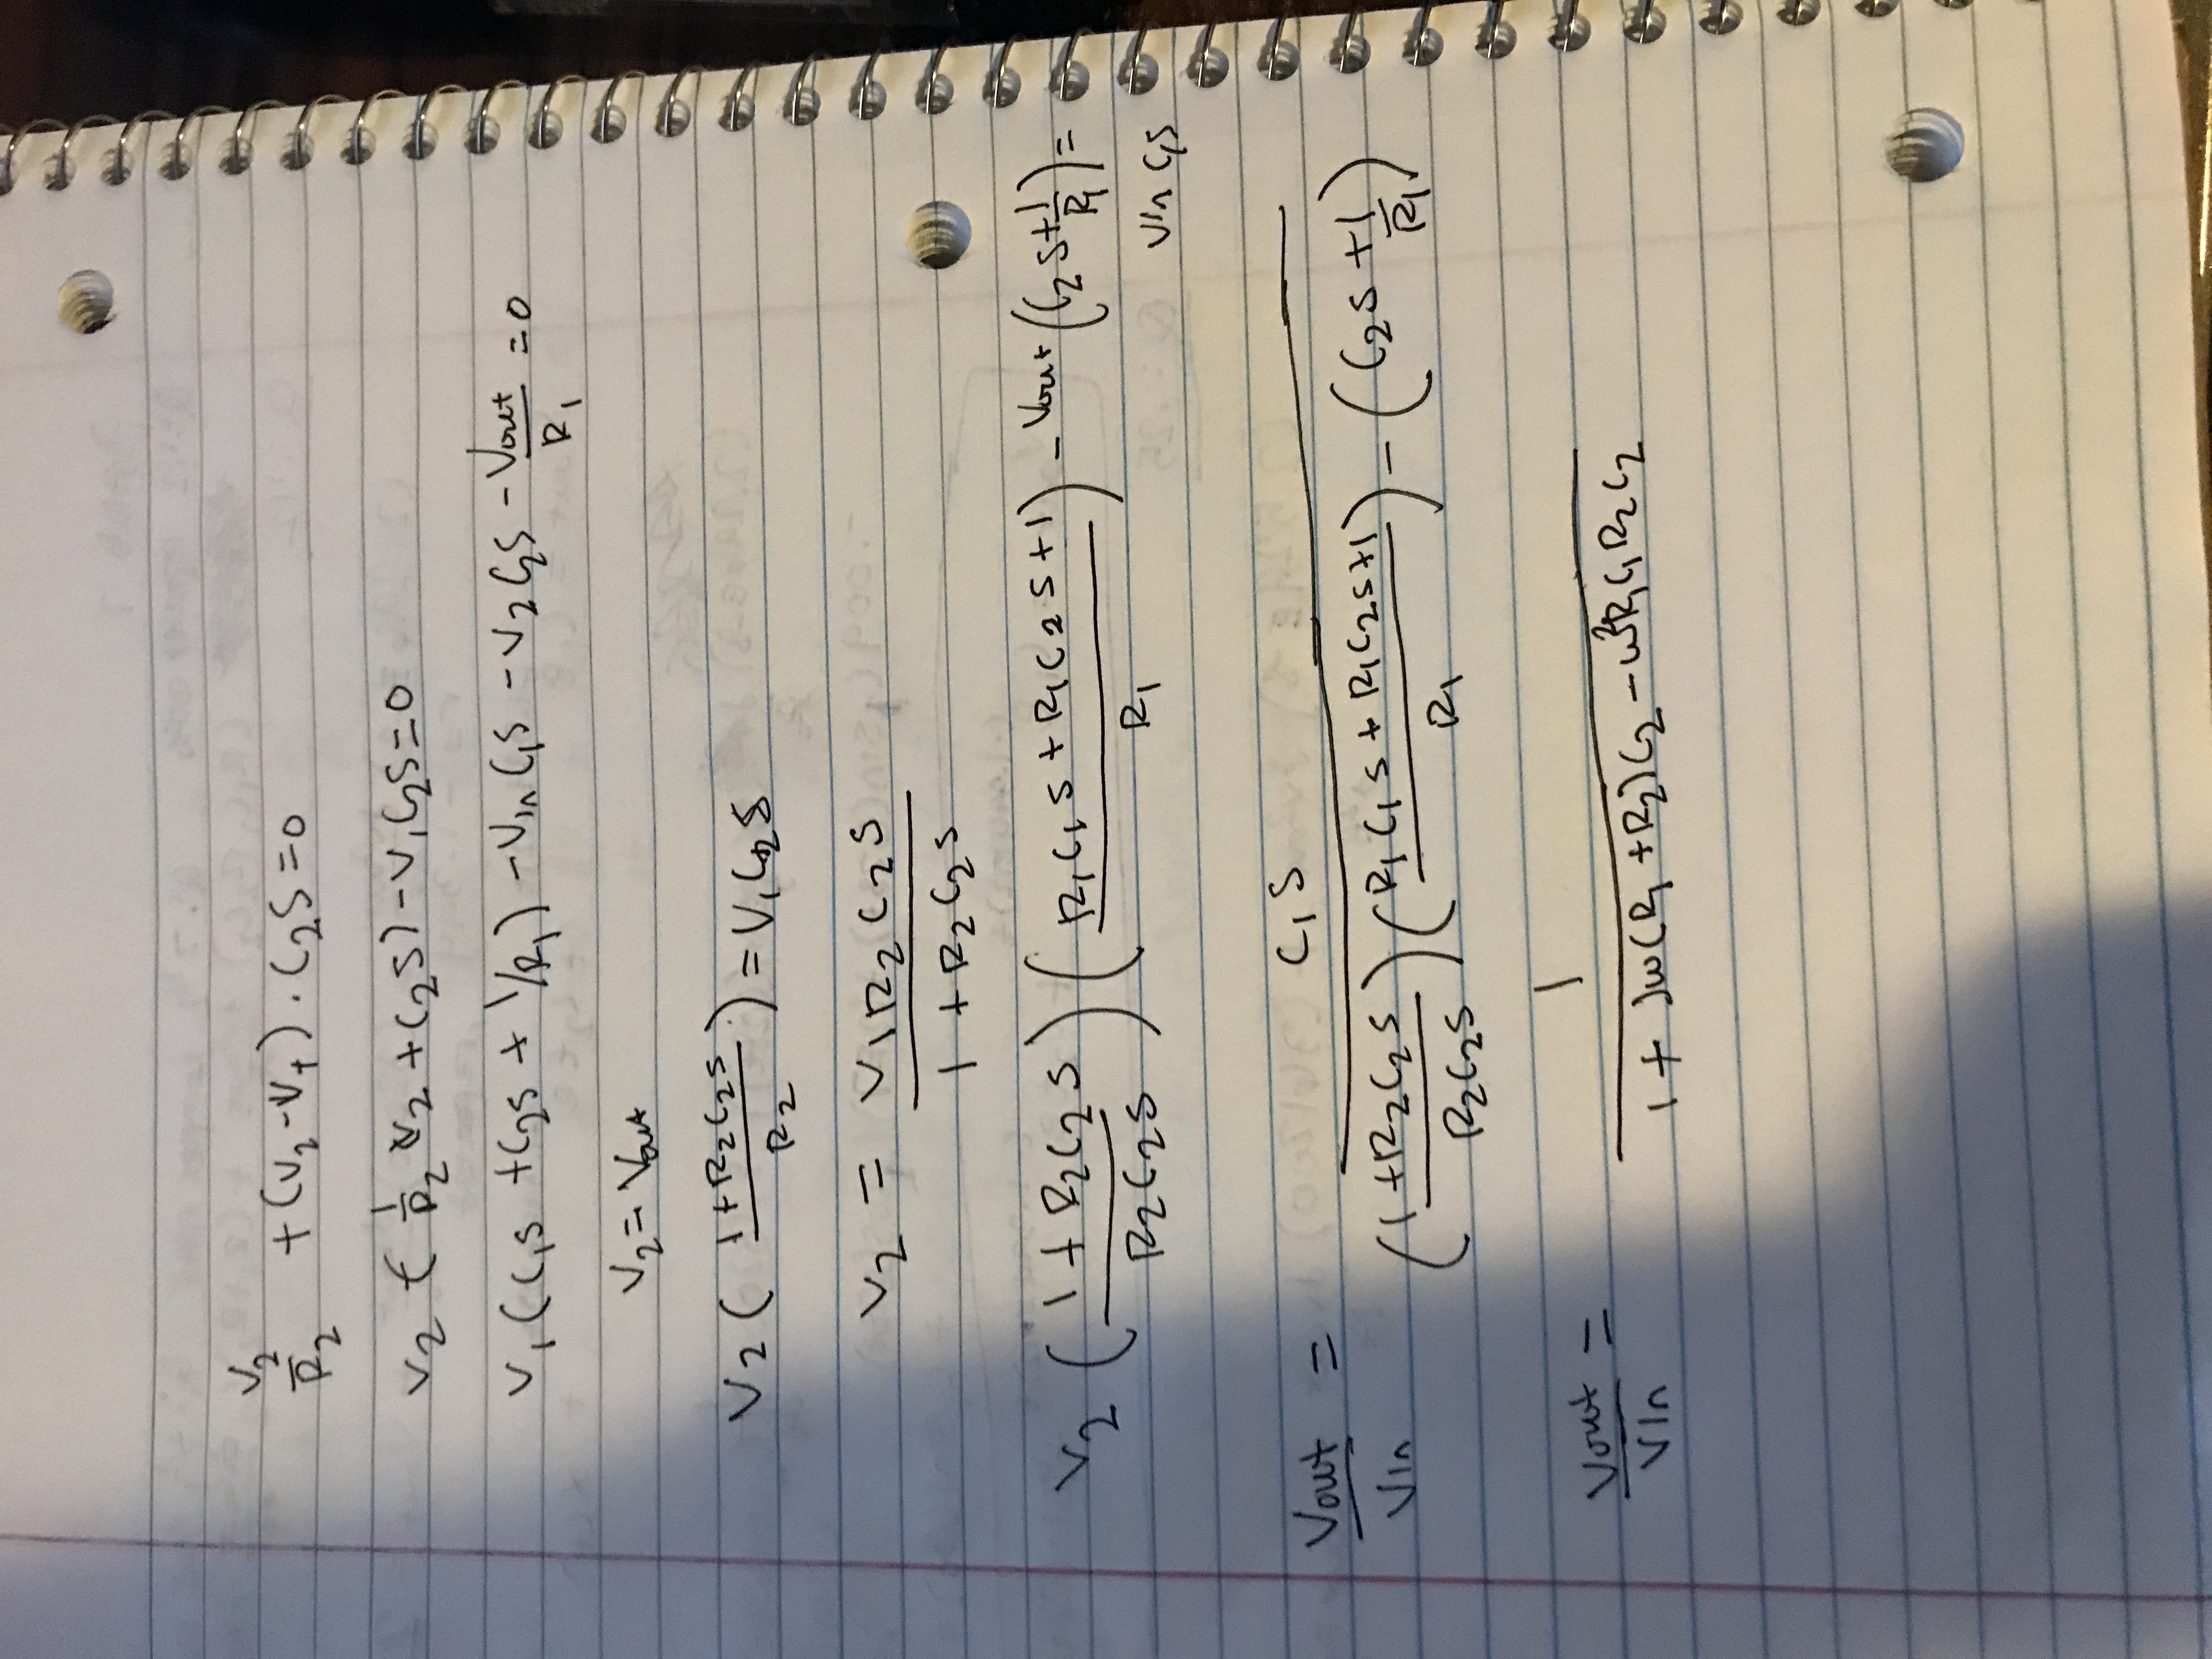 V₂/R₂ + (V₂-V₁) · C₂S = 0
V₂ ( 1/R₂ V₂ + C₂S) - V₁C₂S = 0
V₁ (C₁S + C₂S + 1/R₁) - Vin C₁S - V₂C₂S - Vout/R₁ = 0
V₂ = Vout
V₂ ( (1+R₂C₂S)/R₂ ) = V₁C₂S
V₂ = V₁R₂C₂S / (1 + R₂C₂S)
V₂ ( (1+R₂C₂S)/(R₂C₂S) ) ( (R₁C₁S + R₁C₂S+1)/R₁ ) - Vout (C₂S + 1/R₁) =
Vin C₁S
Vout/Vin = C₁S / ( ( (1+R₂C₂S)/(R₂C₂S) ) ( (R₁C₁S + R₁C₂S+1)/R₁ ) - (C₂S + 1/R₁) )
Vout/Vin = 1 / (1 + Jω(R₁+R₂)C₂ - ω²R₁C₁R₂C₂)